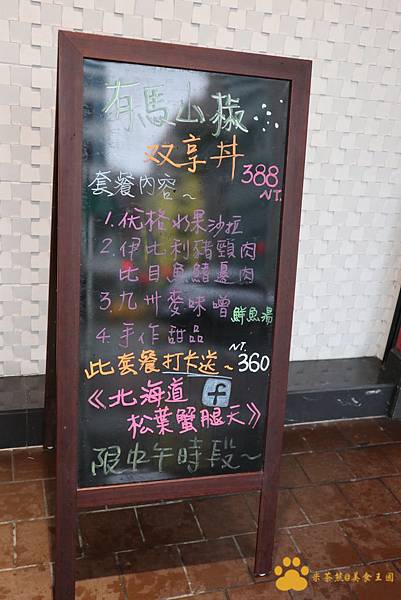 有馬山椒...
双享丼
388
NT.
套餐內容~
1.优格水果沙拉
2.伊比利豬頸肉
比目魚鰭邊肉
3.九州麥味噌鮮魚湯
4.手作甜品
此套餐打卡送~NT.360
《北海道 f
松葉蟹腿天》
限中午時段~
米茶熊@美食王國